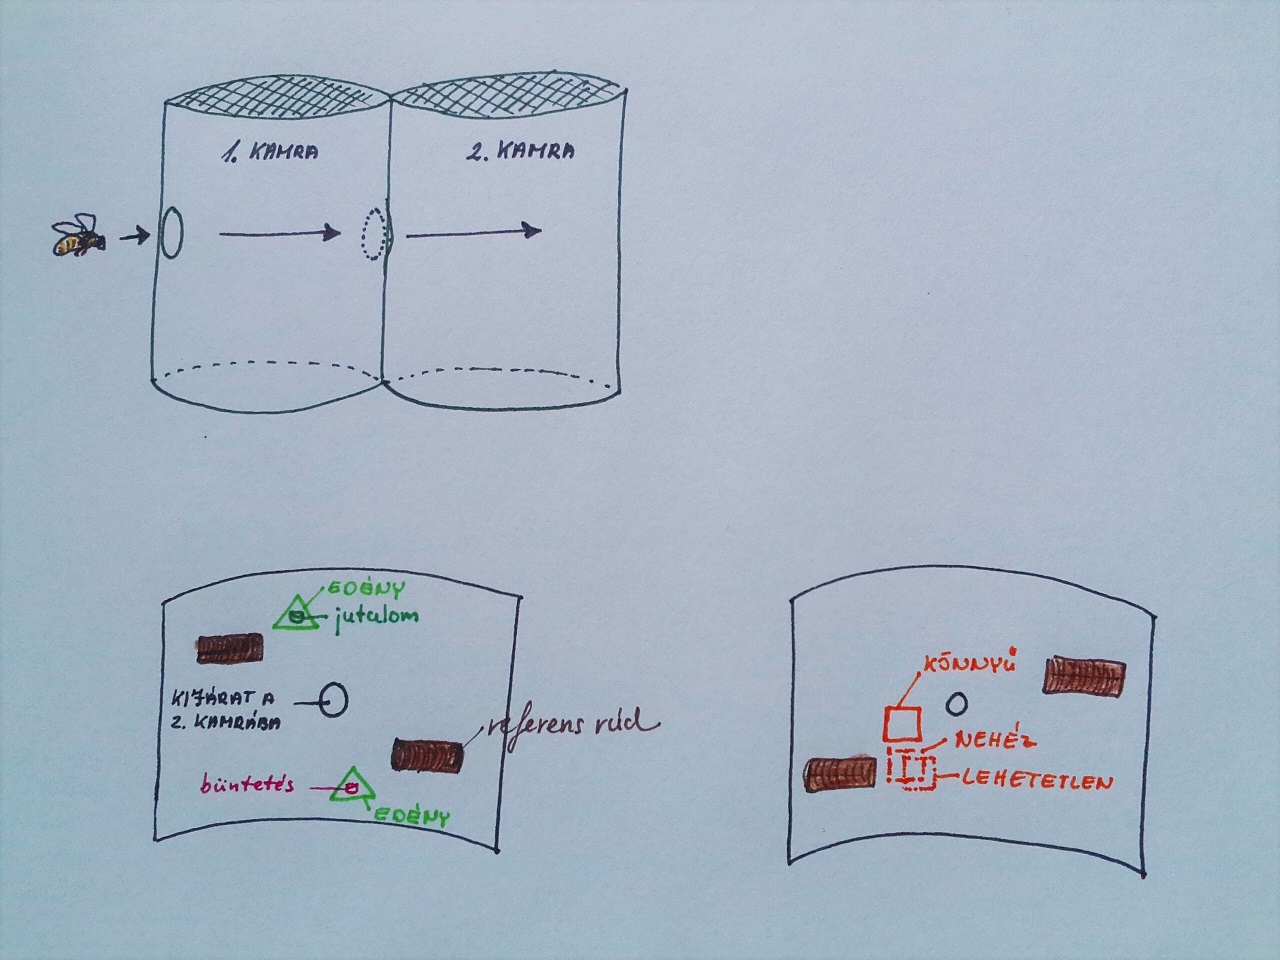 1. KAMRA
2. KAMRA
EDÉNY
jutalom
KIJÁRAT A
2. KAMRÁBA
referens rúd
büntetés
EDÉNY
KÖNNYŰ
NEHÉZ
LEHETETLEN